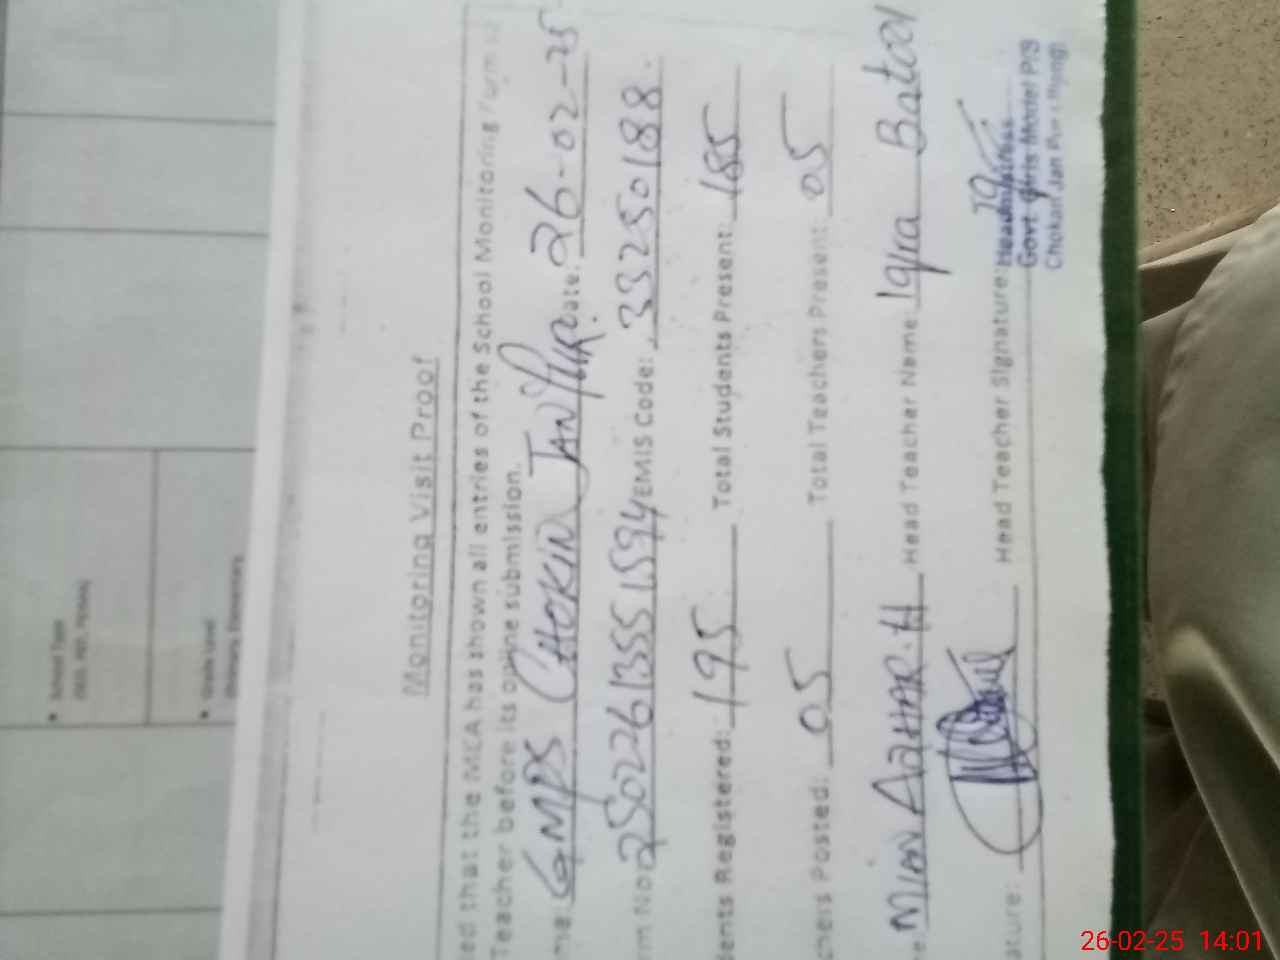 Monitoring Visit Proof
ed that the MCA has shown all entries of the School Monitoring Form
Teacher before its online submission.
me: GMPS CHOKIN JANPUR Date: 26-02-25
rm No: 25022613551594 EMIS Code: 33250188
dents Registered: 195 Total Students Present: 185
chers Posted: 05 Total Teachers Present: 05
e: Mian AZHAR.H Head Teacher Name: Iqra Batool
ature: Head Teacher Signature:
Headmistress
Govt Girls Model P/S
Chokan Jan Pur
School Type
Grade Level
26-02-25 14:01